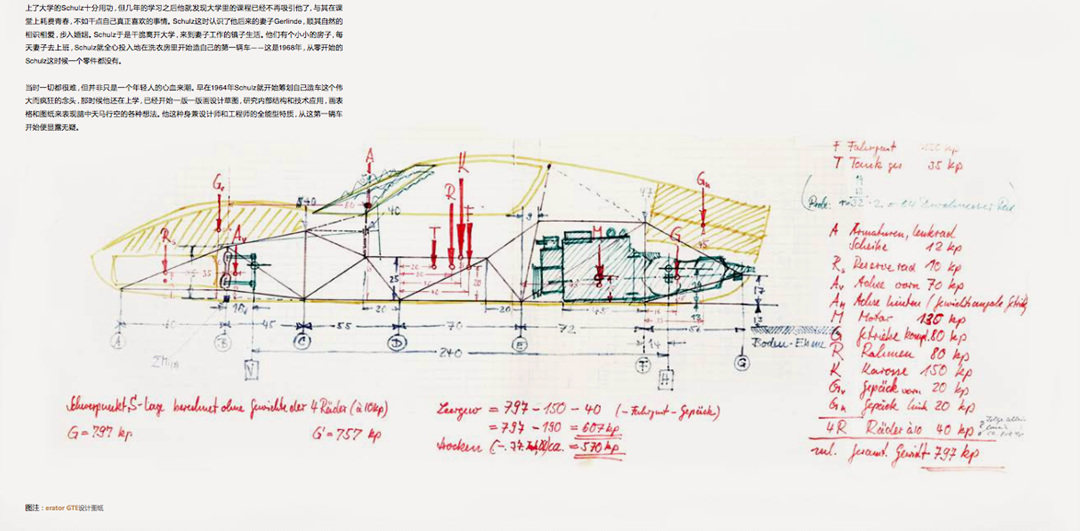 上了大学的Schulz十分用功，但几年的学习之后他就发现大学里的课程已经不再吸引他了，与其在课
堂上耗费青春，不如干点自己真正喜欢的事情。Schulz这时认识了他后来的妻子Gerlinde，顺其自然的
相识相爱，步入婚姻。Schulz于是干脆离开大学，来到妻子工作的镇子生活。他们有个小小的房子，每
天妻子去上班，Schulz就全心投入地在洗衣房里开始造自己的第一辆车——这是1968年，从零开始的
Schulz这时候一个零件都没有。
当时一切都很难，但并非只是一个年轻人的心血来潮。早在1964年Schulz就开始筹划自己造车这个伟
大而疯狂的念头，那时候他还在上学，已经开始一版一版画设计草图，研究内部结构和技术应用，画表
格和图纸来表现脑中天马行空的各种想法。他这种身兼设计师和工程师的全能型特质，从这第一辆车
开始便显露无疑。
F Fahrgast kp
T Tank ges 35 kp
A Armaturen, Lenkrad
Scheibe 12 kp
Rs Reserverad 10 kp
Av Achse vorn 70 kp
AH Achse hinten
M Motor 130 kp
G Getriebe kompl. 80 kp
R Rahmen 80 kp
K Karosse 150 kp
Gv Gepäck vorn 20 kp
GH Gepäck hint 20 kp
4R Räder à 10 40 kp
Gesamt Gewicht 797 kp
A
K
R
T
M
G
40
25
20
70
20
72
45
55
240
14
A
B
C
D
E
F
G
V
H
Boden-Ebene
Schwerpunkt, S-Lage berechnet ohne Gewichte der 4 Räder (à 10kp)
G = 797 kp G' = 757 kp
Leergew = 797 - 150 - 40 (- Fahrgast - Gepäck)
= 797 - 190 = 607 kp
trocken ca. = 570 kp
图注：erator GTE设计图纸